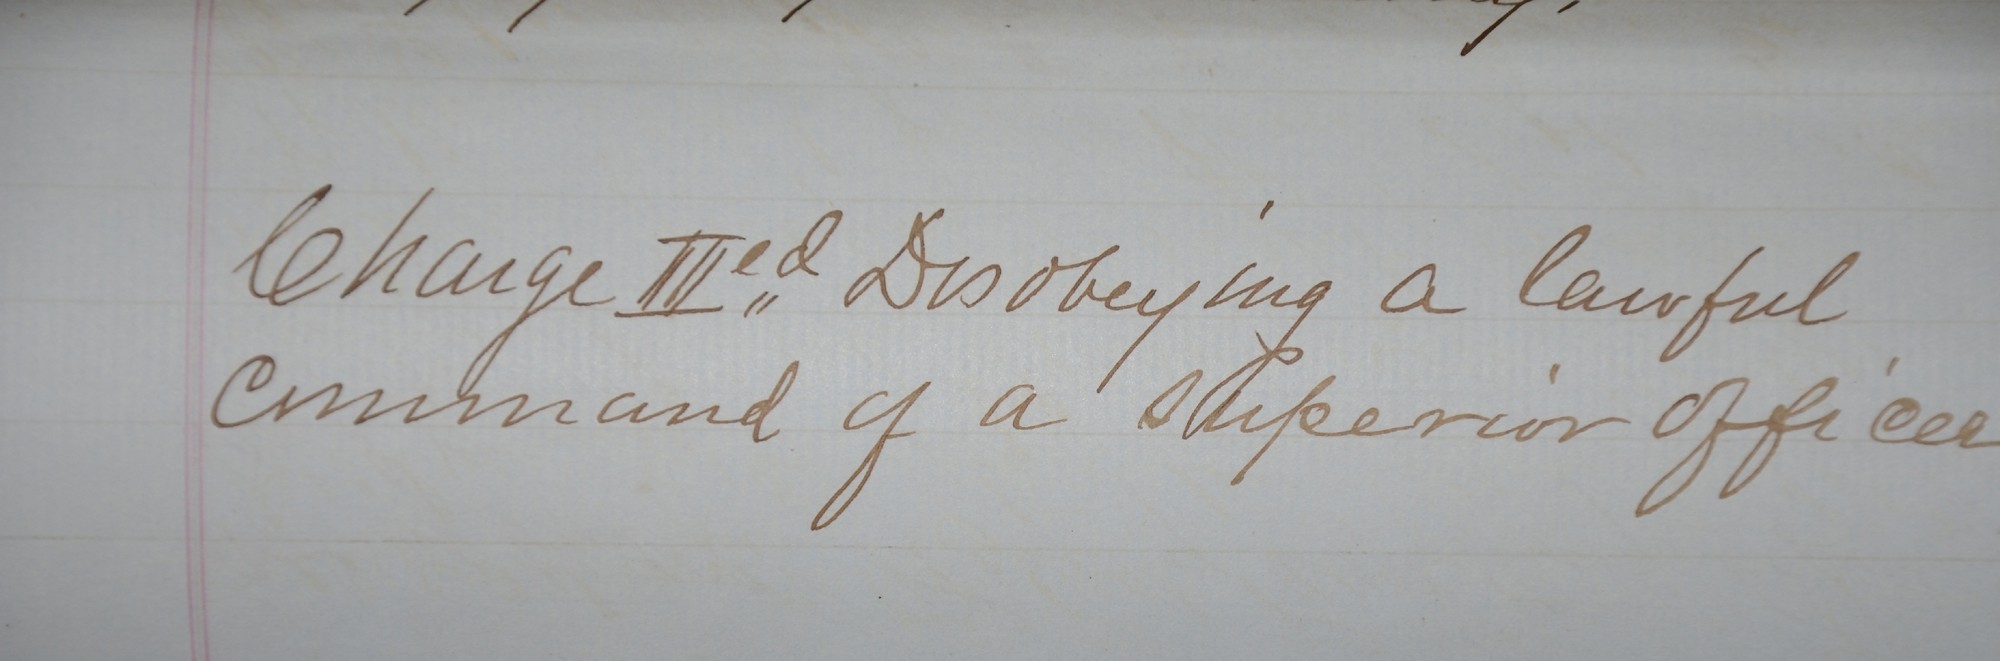 Charge III^ed Disobeying a lawful
command of a superior officer